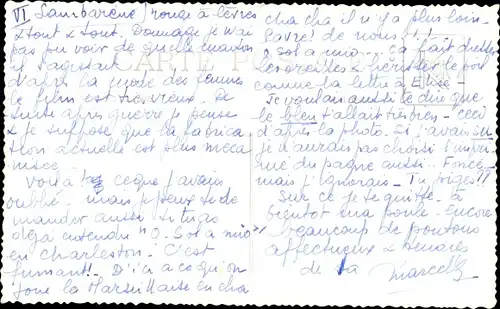 VI Lambaréné) rouge à lèvres
& tout & tout. Dommage je n'ai
pas pu voir de quelle marque
il s'agissait
d'après la mode des femmes
le film est très vieux. De
suite après guerre je pense
& je suppose que la fabrica
tion actuelle est plus méca
nisée
Voilà ce que j'avais
oublié. mais je veux te de
mander aussi si tu as
déjà entendu "O. Sol a mio"
en charleston. C'est
fumant!. D'ici à ce qu'on
joue la Marseillaise en cha
cha cha il n'y a plus loin.
Pauvre! de nous!!!
O sol a mio... ça fait dresser
les oreilles & hérisser le poil
comme la lettre à Elise.
Je voulais aussi te dire que
le bleu t'allait très bien - ceci
d'après la photo. Si j'avais su
je n'aurais pas choisi l'impri
mé du pagne aussi. Foncé
mais j'ignorais - Tu piges!!
Sur ce je te quitte. à
bientôt ma poule. encore
beaucoup de
affectueux & tendres
de ta Marcelle
CARTE POSTALE